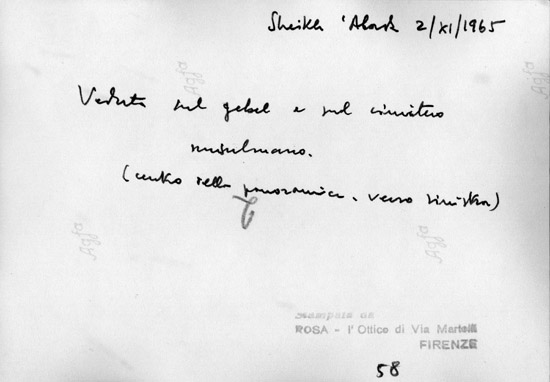 Sheikh 'Abada 2/XI/1965
Veduta sul gebel e sul cimitero
musulmano.
(centro della panoramica, verso sinistra)
Agfa
Agfa
Agfa
Stampata da
ROSA - l'Ottico di Via Martelli
FIRENZE
58